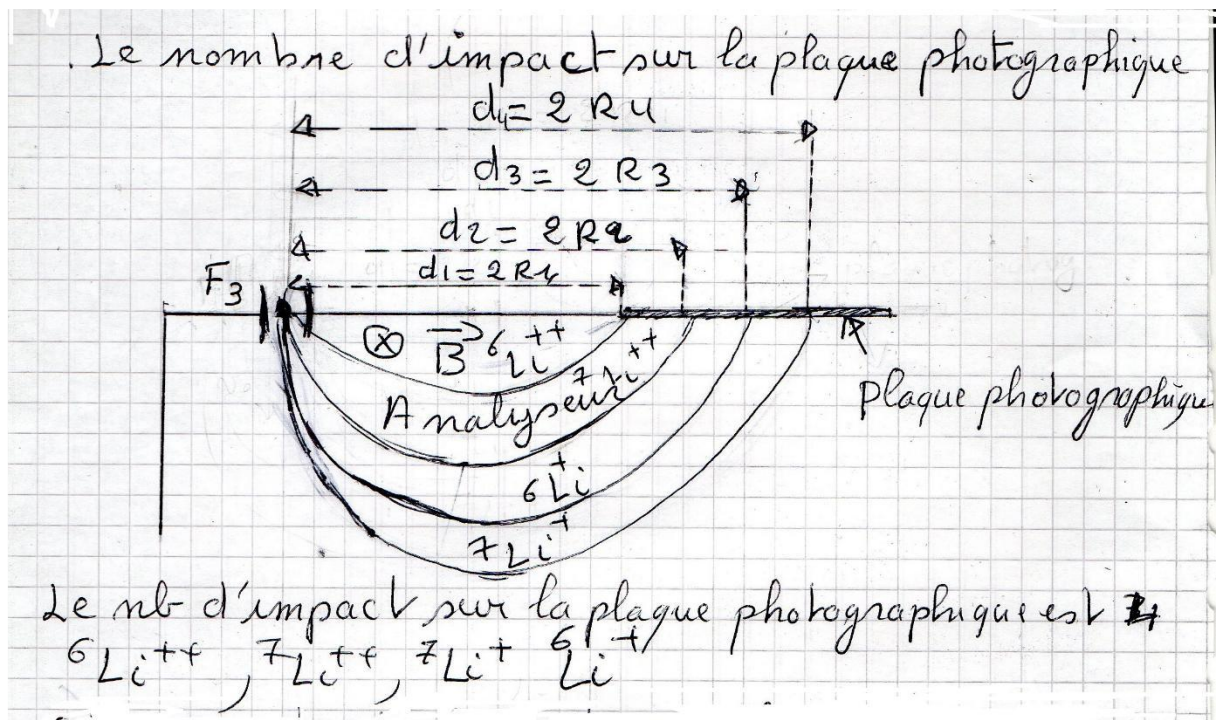 . Le nombre d'impact sur la plaque photographique
d4 = 2 R4
d3 = 2 R3
d2 = 2 R2
d1 = 2 R1
F3
⊗ B⃗ ⁶Li⁺⁺
⁷Li⁺⁺
Analyseur
Plaque photographique
⁶Li⁺
⁷Li⁺
Le nb d'impact sur la plaque photographique est 4
⁶Li⁺⁺, ⁷Li⁺⁺, ⁷Li⁺ ⁶Li⁺